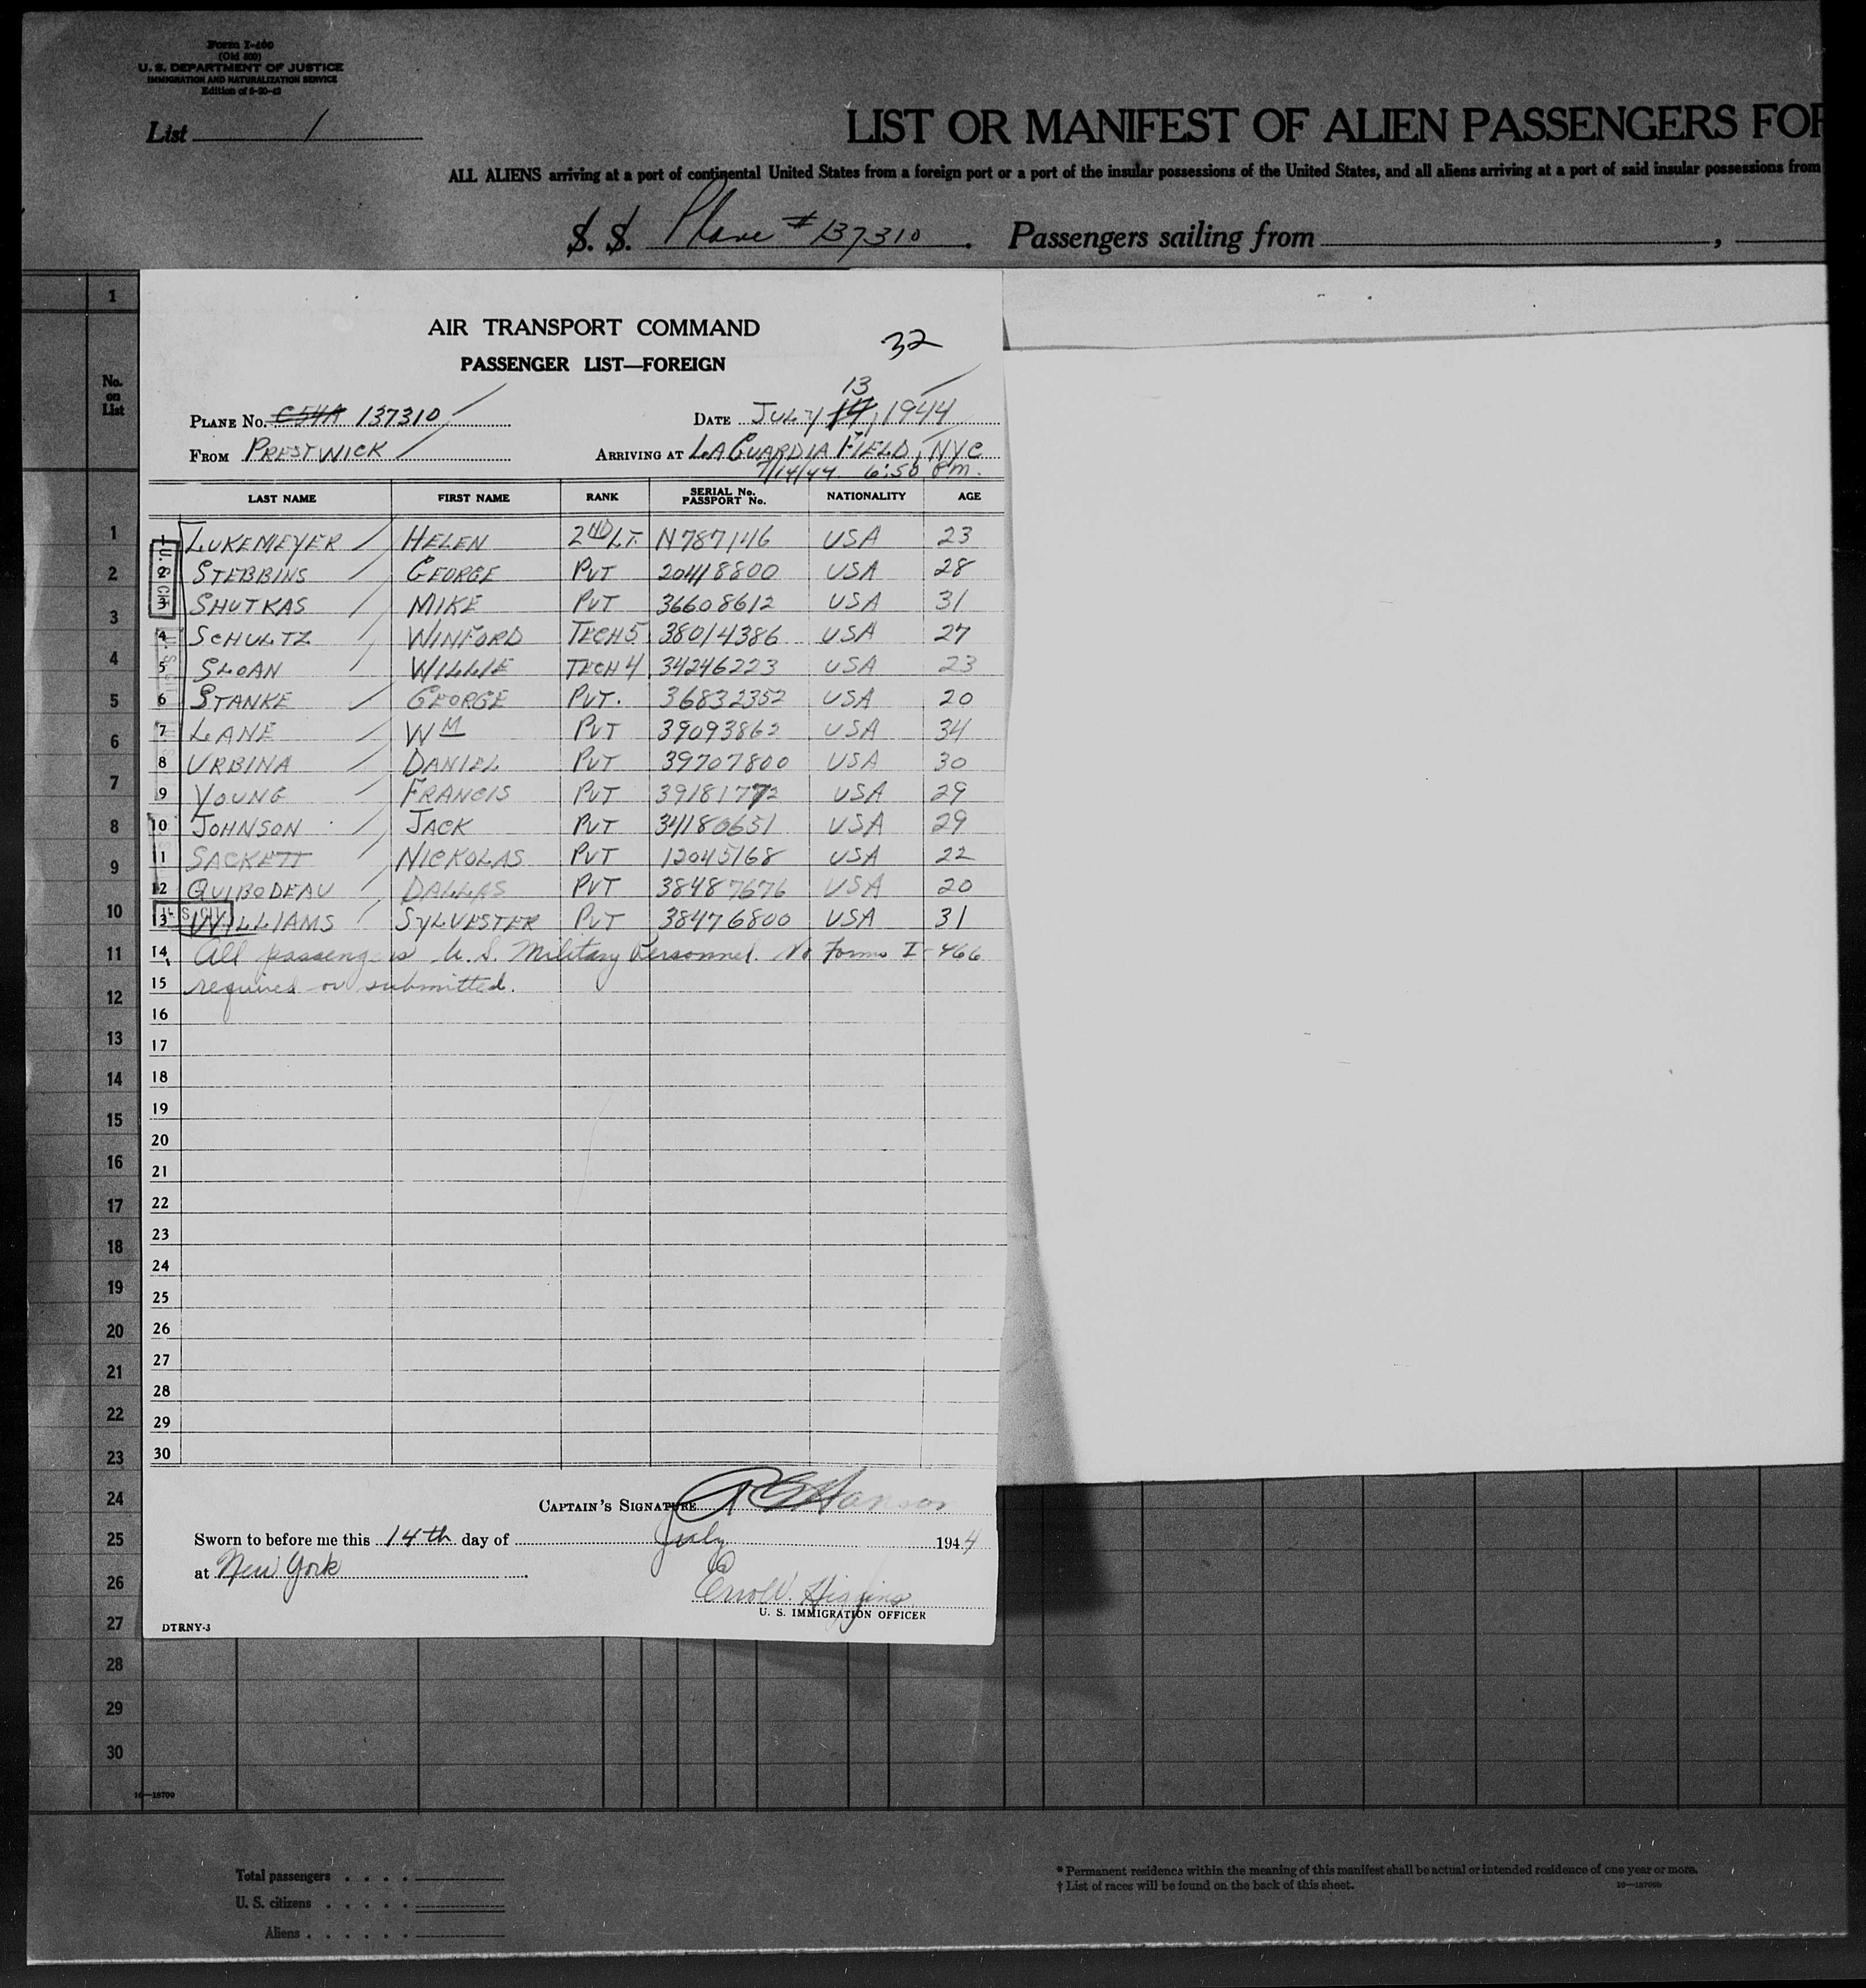 Form I-466
(Old 500)
U. S. DEPARTMENT OF JUSTICE
IMMIGRATION AND NATURALIZATION SERVICE
List 1
LIST OR MANIFEST OF ALIEN PASSENGERS FOR
ALL ALIENS arriving at a port of continental United States from a foreign port or a port of the insular possessions of the United States, and all aliens arriving at a port of said insular possessions from
S. S. Plane # 137310. Passengers sailing from
AIR TRANSPORT COMMAND
32
PASSENGER LIST—FOREIGN
13
PLANE No. C54A 137310 DATE JULY 14, 1944
FROM PRESTWICK ARRIVING AT LAGUARDIA FIELD, NYC
7/14/44 6:50 PM.
No. on List
LAST NAME FIRST NAME RANK SERIAL No. PASSPORT No. NATIONALITY AGE
1 LUKEMEYER HELEN 2ND LT. N787146 USA 23
2 STEBBINS GEORGE PVT 20418800 USA 28
3 SHUTKAS MIKE PVT 36608612 USA 31
4 SCHULTZ WINFORD TECH 5 38014386 USA 27
5 SLOAN WILLIE TECH 4 34246223 USA 23
6 STANKE GEORGE PVT. 36832352 USA 20
7 LANE WM PVT 39093862 USA 34
8 URBINA DANIEL PVT 39707800 USA 30
9 YOUNG FRANCIS PVT 39181772 USA 29
10 JOHNSON JACK PVT 34180651 USA 29
11 SACKETT NICKOLAS PVT 12045168 USA 22
12 QUIBODEAU DALLAS PVT 38487676 USA 20
13 WILLIAMS SYLVESTER PVT 38476800 USA 31
14 All passengers U.S. Military Personnel. No Forms I-466
15 required or submitted.
16
17
18
19
20
21
22
23
24
25
26
27
28
29
30
CAPTAIN'S SIGNATURE Hanson
Sworn to before me this 14th day of July 1944
at New York
Errol W. Higgins
U. S. IMMIGRATION OFFICER
DTRNY-3
1
1
2
3
4
5
6
7
8
9
10
11
12
13
14
15
16
17
18
19
20
21
22
23
24
25
26
27
28
29
30
16—18709
Total passengers . . . .
U. S. citizens . . . . .
Aliens . . . . . .
* Permanent residence within the meaning of this manifest shall be actual or intended residence of one year or more.
† List of races will be found on the back of this sheet.